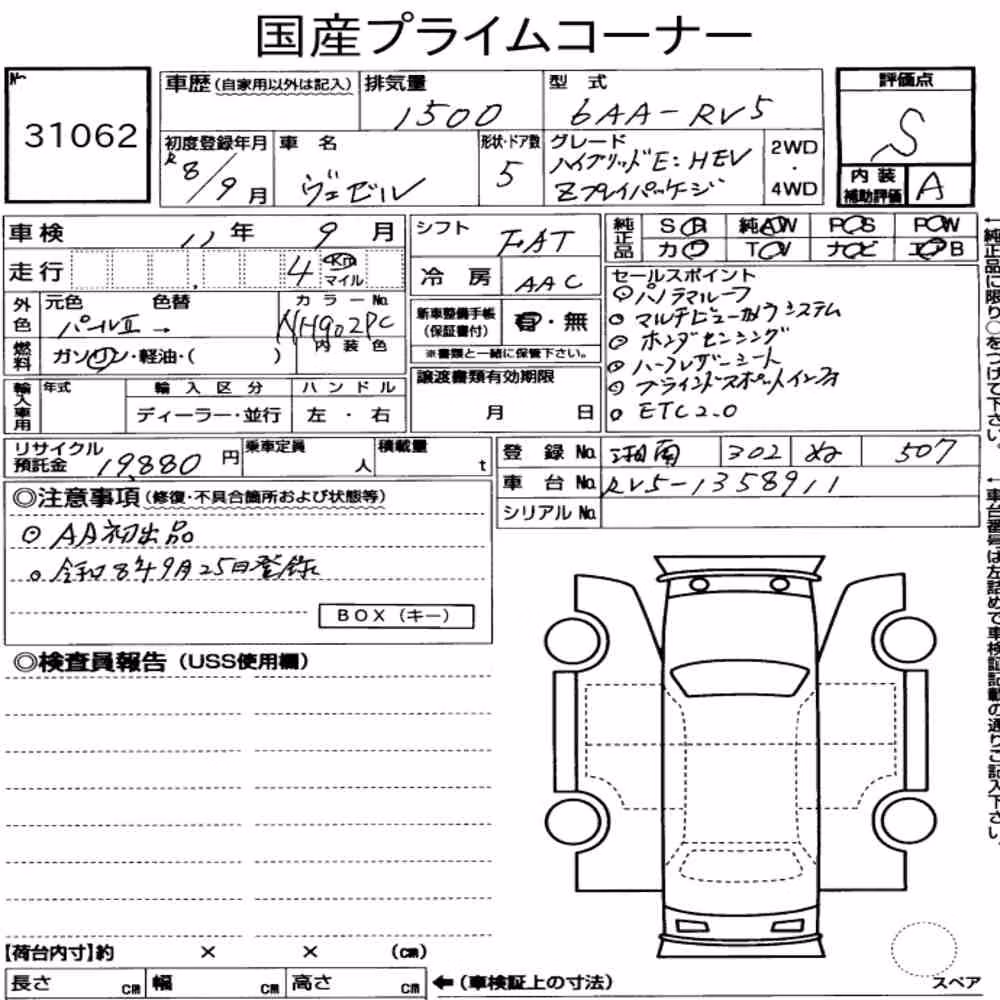 国産プライムコーナー
No.
31062
車歴(自家用以外は記入)
排気量
1500
型 式
6AA-RV5
評価点
S
初度登録年月
R8/9月
車 名
ヴェゼル
形状・ドア数
5
グレード
ハイブリッドE:HEV
Zプレイパッケージ
2WD
・
4WD
内 装
補助評価
A
車検 11年 9月
走行 4 Km
マイル
シフト
FAT
冷 房
AAC
純正品
SR
純AW
PS
PW
カワ
TV
ナビ
エアB
外色
元色
色替
パールII→
カラーNo.
NH902PC
内装色
燃料
ガソリン・軽油・( )
新車整備手帳
(保証書付)
有・無
※書類と一緒に保管下さい。
セールスポイント
⊙パノラマルーフ
○マルチビューカメラシステム
○ホンダセンシング
○ハーフレザーシート
○ブラインドスポットインフォ
○ETC2.0
輸入車用
年式
輸 入 区 分
ディーラー・並行
ハ ン ド ル
左 ・ 右
譲渡書類有効期限
月 日
リサイクル
預託金
19880円
乗車定員
人
積載量
t
登 録 No.
湘南 302 ぬ 507
車 台 No.
RV5-1358911
シリアル No.
◎注意事項(修復・不具合箇所および状態等)
⊙AA初出品
○令和8年9月25日登録
BOX(キー)
◎検査員報告(USS使用欄)
【荷台内寸】約 × × (cm)
長さ cm 幅 cm 高さ cm ←(車検証上の寸法)
スペア
←純正品に限り○をつけて下さい。
←車台番号は左詰めで車検証記載の通りご記入下さい。